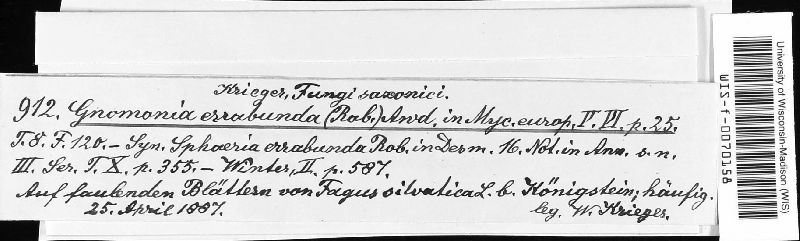 Krieger, Fungi saxonici.
912. Gnomonia errabunda (Rob.) Awd, in Myc. europ. V. VI. p. 25.
T. 8. F. 120. – Syn. Sphaeria errabunda Rob. in Desm. 16. Not. in Ann. s. n.
III. Ser. T. X. p. 355. – Winter, II. p. 587.
Auf faulenden Blättern von Fagus silvatica L. b. Königstein; häufig.
25. April 1887.
leg. W. Krieger.
University of Wisconsin-Madison (WIS)
WIS-f-0070158